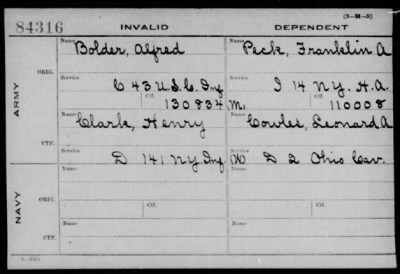 (3-M-5)
84316 INVALID DEPENDENT
Name Name
Bolder, Alfred Peck, Franklin A
ORIG.
Service Service
C 43 U.S.C. Inf I 14 NY. H.A.
Ctf. Ctf.
130834 M. 110008
ARMY
Name Name
Clark, Henry Cowles, Leonard A
CTF.
Service Service
D 141 NY Inf (W) D 2 Ohio Cav.
Name Name
ORIG.
Ctf. Ctf.
NAVY
Name Name
CTF.